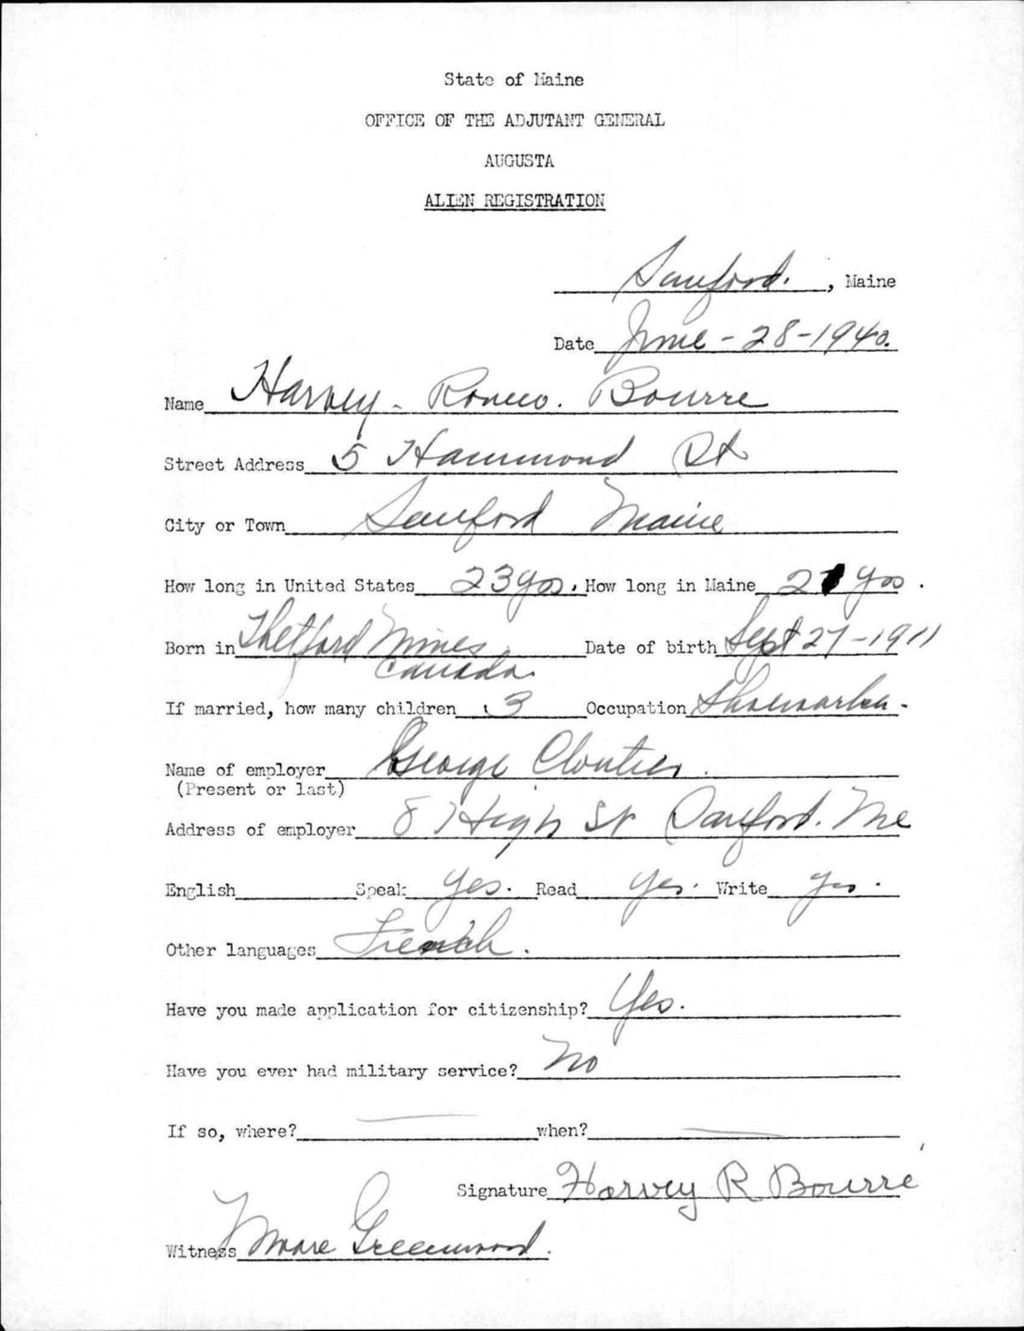 State of Maine
OFFICE OF THE ADJUTANT GENERAL
AUGUSTA
ALIEN REGISTRATION
Sanford. , Maine
Date June - 28 - 1940.
Name Harvey - Romeo. Bourre
Street Address 5 Hammond St
City or Town Sanford Maine
How long in United States 23 yrs. How long in Maine yrs.
Born in Thetford Mines Date of birth Sept 27 - 1911
Canada.
If married, how many children 3 Occupation Shoeworker.
Name of employer George Cloutier.
(Present or last)
Address of employer 8 High St Sanford. Me
English Speak Yes. Read Yes. Write Yes.
Other languages French.
Have you made application for citizenship? Yes.
Have you ever had military service? No
If so, where? when?
Signature Harvey R Bourré
Witness Moore Greenwood.